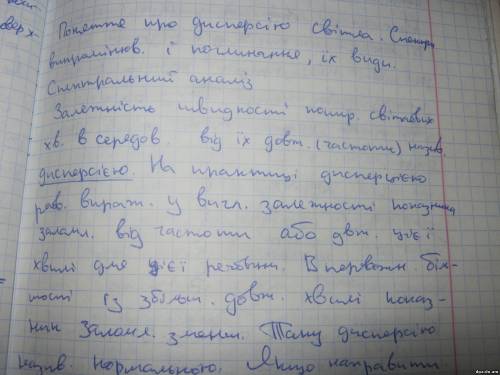 Поняття про дисперсію світла. Спектри
випромінюв. і поглинання, їх види.
Спектральний аналіз
Залежність швидкості пошир. світлових
хв. в середов. від їх довж. (частоти) назив.
дисперсією. На практиці дисперсією
вираж. у вигл. залежності показника
заломл. від частоти або довж. цієї
хвилі для цієї речовини. В переважн. біль-
шості із збільш. довж. хвилі показ-
ник заломл. зменш. Таку дисперсію
назив. нормальною. Якщо направити